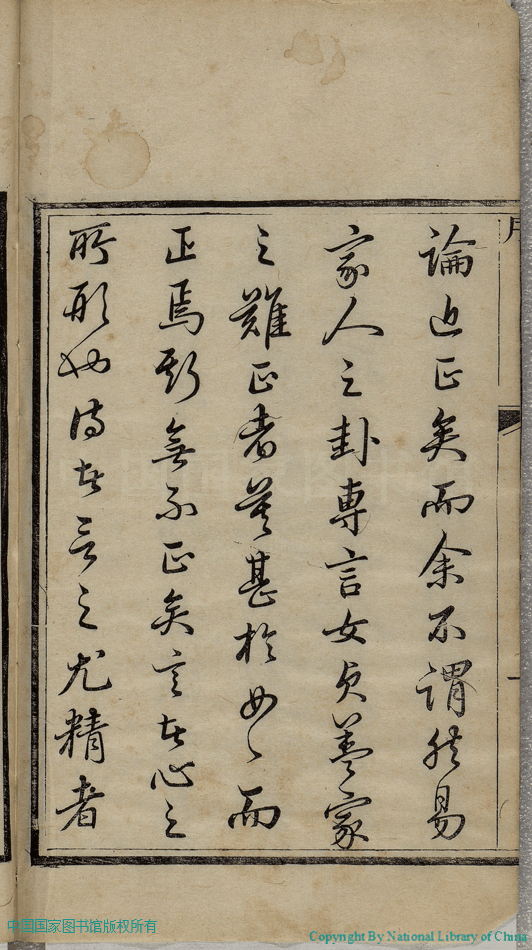 論近正矣而余不謂然易
家人之卦專言女貞蓋家
之難正者莫甚於女女而
正焉斯無不正矣言者心之
所形也詩者言之尤精者
中国国家图书馆版权所有
Copyright By National Library of China